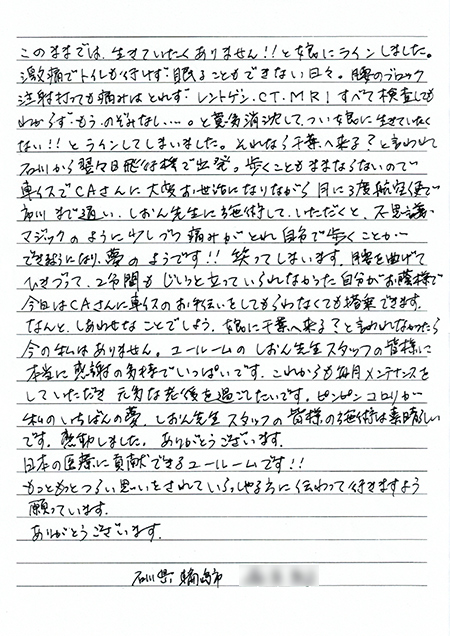 このままでは、生きていたくありません!!と娘にラインしました。
激痛でトイレも行けず眠ることもできない日々。腰のブロック
注射打っても痛みはとれず、レントゲン、CT、MRI すべて検査しても
わからず、もう、のぞみなし…。と意気消沈して、つい娘に生きていたく
ない!!とラインしてしまいました。それなら千葉へ来る?と言われて
石川から翌々日飛行機で出発。歩くこともままならないので
車イスでCAさんに大変お世話になりながら月に3度航空便で
市川まで通い、しおん先生に施術していただくと、不思議、
マジックのように少しづつ痛みがとれ自分で歩くことが
できるようになり、夢のようです!!笑ってしまいます。腰を曲げて
ひきづって、2分間もじいっと立っていられなかった自分がお蔭様で
今日はCAさんに車イスのお手伝いをしてもらわなくても搭乗できます。
なんと、しあわせなことでしょう。娘に千葉へ来る?と言われなかったら
今の私はありません。ユールームのしおん先生スタッフの皆様に
本当に感謝の気持でいっぱいです。これからも毎月メンテナンスを
していただき 元気な老後を過ごしたいです。ピンピンコロリが
私のいちばんの夢。しおん先生スタッフの皆様の施術は素晴しい
です。感動しました。ありがとうございます。
日本の医療に貢献できるユールームです!!
もっともっとつらい思いをされていらっしゃる方に伝わって行きますよう
願っています。
ありがとうございます。
石川県 輪島市